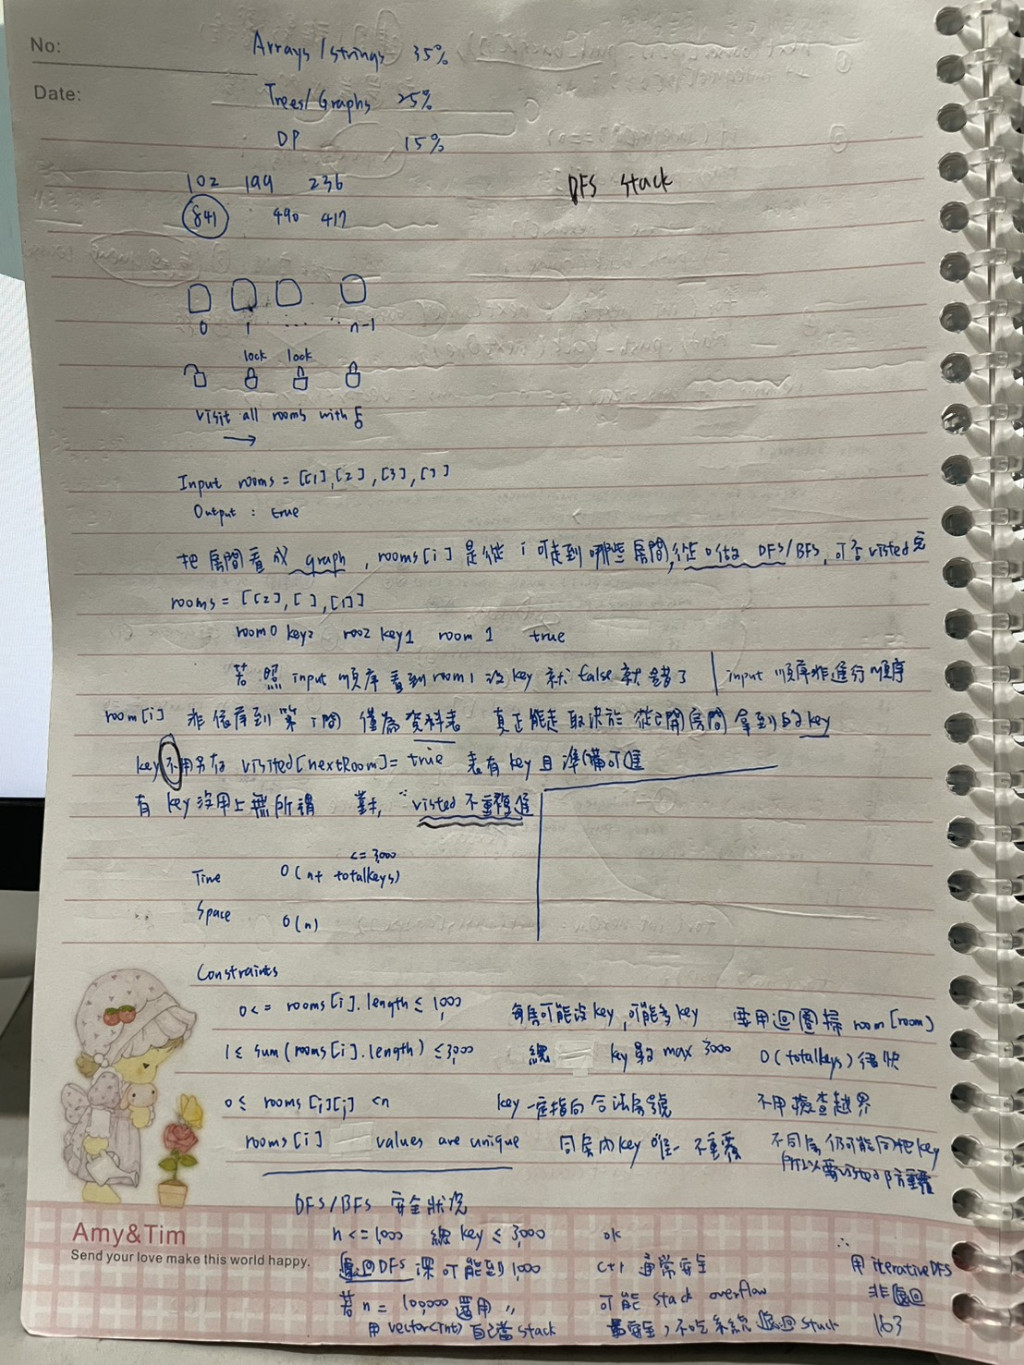 No:
Date:
Arrays/strings 35%
Trees/Graphs 25%
DP 15%
102 199 236
841 490 417
DFS stack
0 1 ... .. n-1
lock lock
visit all rooms with
Input rooms = [[1],[2],[3],[]]
Output : true
把房間看成 graph, rooms[i] 是從 i 可走到哪些房間,從0做 DFS/BFS, 可否visted完
rooms = [[2],[ ],[1]]
room0 key2 roo2 key1 room 1 true
若照 input 順序看到 room1 沒key 就 false 就錯了 input 順序非進行順序
room[i] 非依序到第 i 間 僅為資料表 真正能走取決於 從已開房間拿到的key
key不用另存 visited[nextRoom]= true 表有key且準備可進
有 key 沒用上無所謂 ∵ visted 不重複進
<= 3000
Time O(n+ totalkeys)
Space O(n)
Constraints
0<= rooms[i].length ≤ 1,000 每房可能沒key,可能多key 要用迴圈掃room[room]
1 ≤ sum(rooms[i].length) ≤3,000 總 key 數 max 3000 O(totalkeys)很快
0 ≤ rooms[i][j] <n key一定指向合法房號 不用檢查越界
rooms[i] values are unique 同房內key唯一 不重覆 不同房仍可能同把key
所以要
DFS/BFS 安全狀況
n <=1,000 總 key ≤ 3,000 ok ∴
遞迴DFS 深可能到1,000 c++ 通常安全 用 iterativeDFS
若n = 100,000 還用 〃 可能 stack overflow 非遞迴
用 vector<int> 自己當stack 最安全,不吃系統遞迴stack 163
Amy&Tim
Send your love make this world happy.